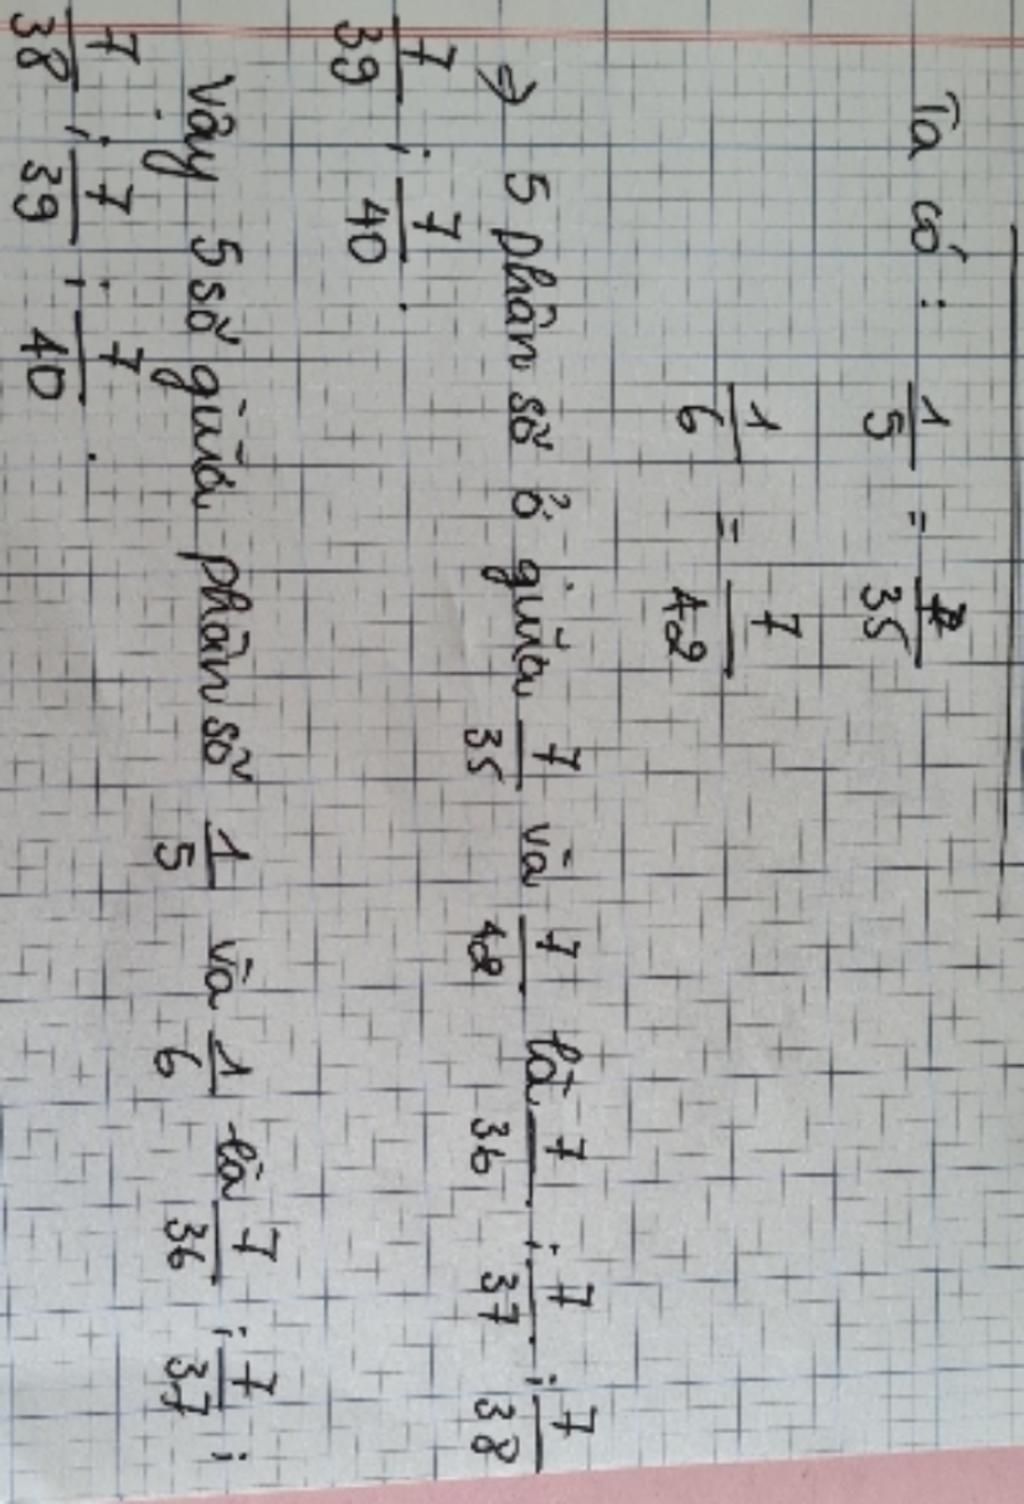 Ta có : 1/5 = 7/35
1/6 = 7/42
=> 5 phân số ở giữa 7/35 và 7/42 là 7/36 ; 7/37 ; 7/38
7/39 ; 7/40 .
Vậy 5 số giữa phân số 1/5 và 1/6 là 7/36 ; 7/37 ;
7/38 ; 7/39 ; 7/40 .